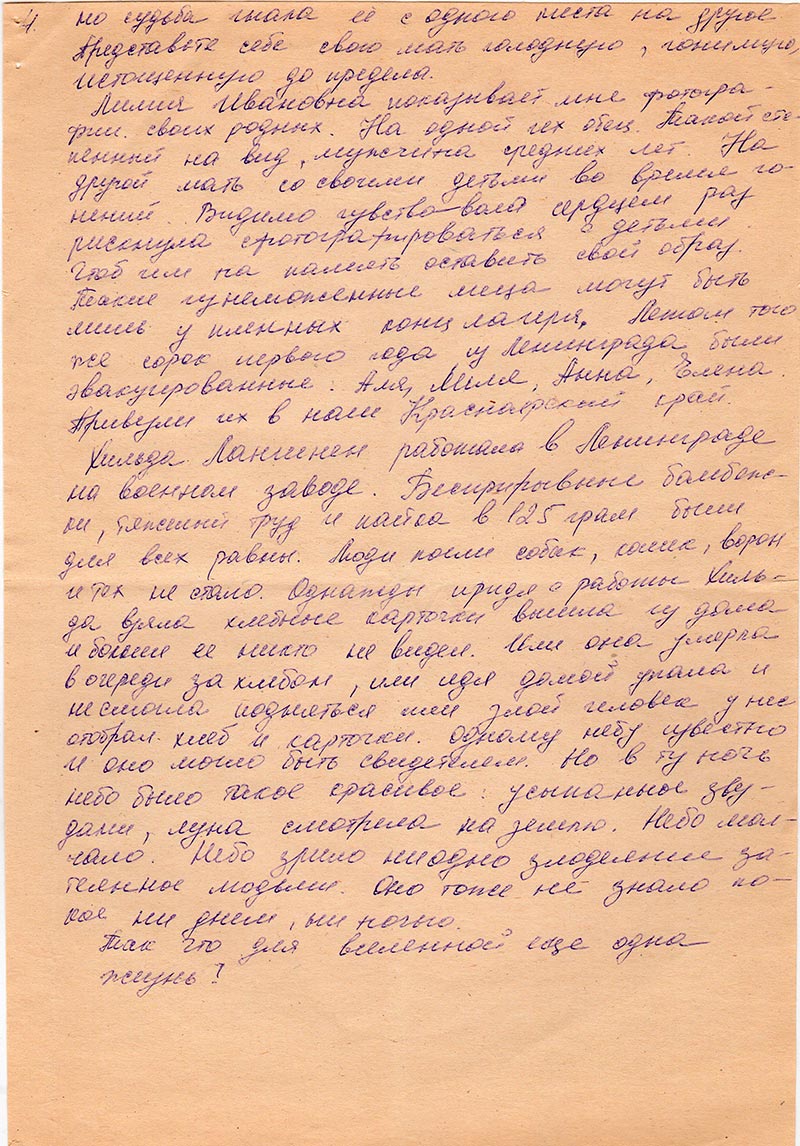 4. но судьба гнала её с одного места на другое
Представьте себе свою мать голодную, гонимую,
истощенную до предела.
Лилия Ивановна показывает мне фотогра-
фии своих родных. На одной их отец. Такой сте-
пенный на вид, мужчина средних лет. На
другой мать со своими детьми во время го-
нений. Видимо чувство-вала сердцем раз
рискнула сфотографироваться с детьми.
Чтоб им на память оставить свой образ.
Такие изнеможенные лица могут быть
лишь у пленных концлагеря. Летом того
же сорок первого года из Ленинграда были
эвакуированные: Аля, Миля, Анна, Елена.
Привезли их в наш Красноярский край.
Хильда Лангинен работала в Ленинграде
на военном заводе. Бесприрывные бамбеж-
ки, тяжелый труд и пайка в 125 грам были
для всех равны. Люди поели собак, кошек, ворон
и тех не стало. Однажды придя с работы Хиль-
да взяла хлебные карточки вышла из дома
и больши ее никто не видел. Или она умерла
в очереди за хлебом, или идя домой упала и
несмогла подняться или злой человек у нее
отобрал хлеб и карточки. Одному небу известно
и оно могло быть свидетелем. Но в ту ночь
небо было такое красивое: усыпанное звез-
дами, луна смотрела на землю. Небо мол-
чало. Небо зрило ниодно злодеяние за-
теянное людьми. Оно тоже не знало по-
коя ни днем, ни ночью.
Так что для вселенной еще одна
жизнь?